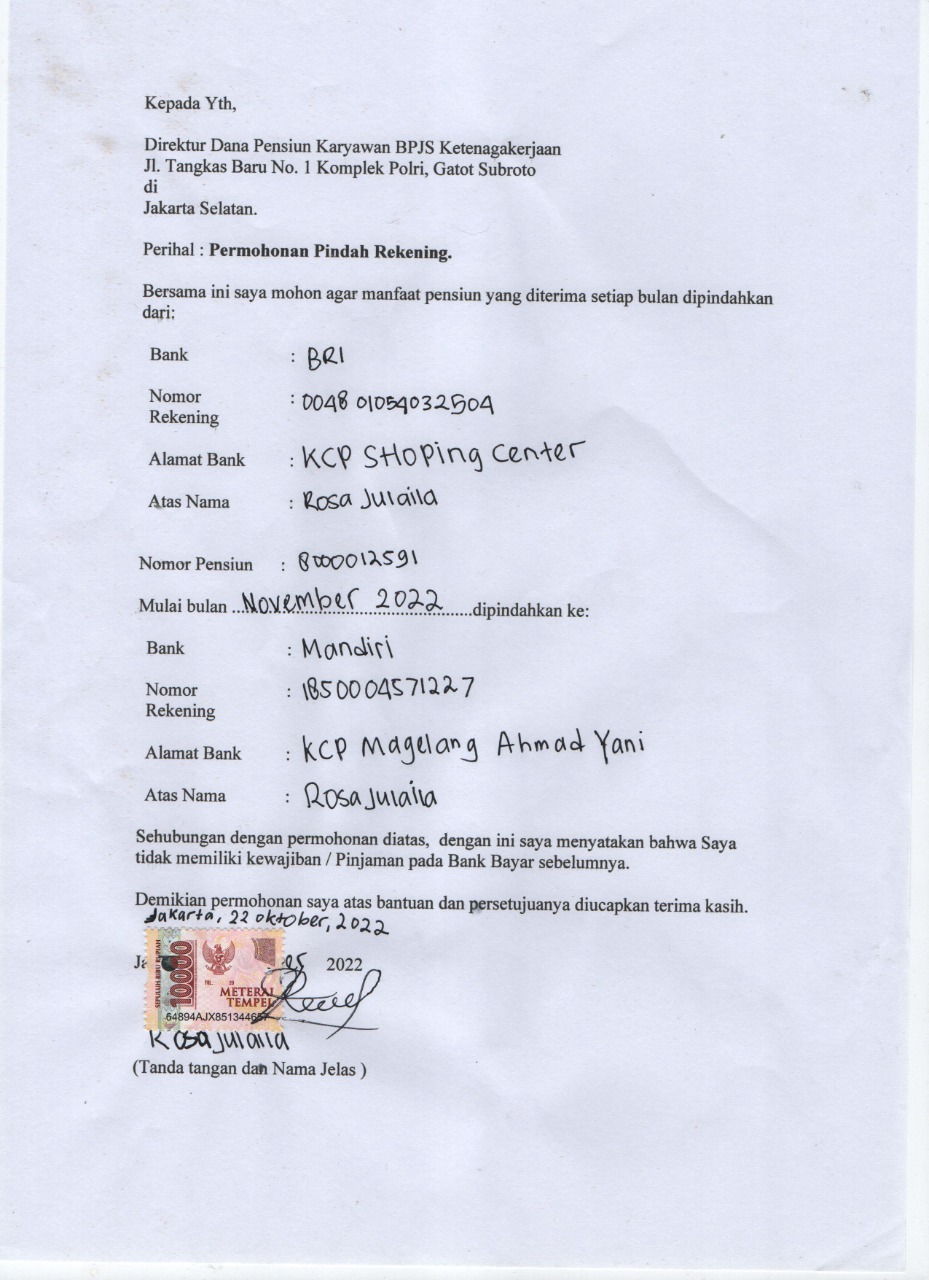 Kepada Yth,
Direktur Dana Pensiun Karyawan BPJS Ketenagakerjaan
Jl. Tangkas Baru No. 1 Komplek Polri, Gatot Subroto
di
Jakarta Selatan.
Perihal : Permohonan Pindah Rekening.
Bersama ini saya mohon agar manfaat pensiun yang diterima setiap bulan dipindahkan
dari:
Bank : BRI
Nomor Rekening : 0048 01054032504
Alamat Bank : KCP SHoping Center
Atas Nama : Rosa Julaila
Nomor Pensiun : 8000012591
Mulai bulan ...November 2022......dipindahkan ke:
Bank : Mandiri
Nomor Rekening : 1850004571227
Alamat Bank : KCP Magelang Ahmad Yani
Atas Nama : Rosa Julaila
Sehubungan dengan permohonan diatas, dengan ini saya menyatakan bahwa Saya
tidak memiliki kewajiban / Pinjaman pada Bank Bayar sebelumnya.
Demikian permohonan saya atas bantuan dan persetujuanya diucapkan terima kasih.
Jakarta, 22 oktober, 2022
2022
SEPULUH RIBU RUPIAH
10000
METERAI
TEMPEL
64894AJX851344657
Rosa Julaila
(Tanda tangan dan Nama Jelas )